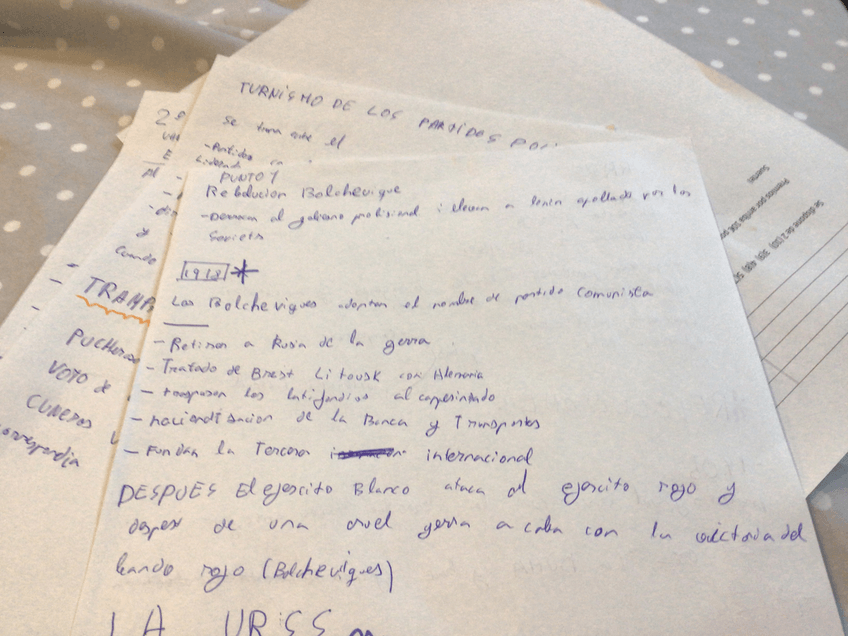 TURNISMO DE LOS PARTIDOS POR
Se turna entre el
-Partidos
PUNTO 1
Rebolucion Bolchevique
-Derrocan al gobierno provisional i elevan a lenin apollado por los
Soviets
1918 *
Los Bolcheviques adoptan el nombre de partido Comunista
- Retiran a Rusia de la gerra
- Tratado de Brest Litousk con Alemania
- traspasan los latifundios al campesinado
- nacionalitzacion de la Banca y Transportes
- Fundan la Tercera internacional
DESPUES El ejercito Blanco ataca al ejercito rojo y
despes de una cruel gerra acaba con la victoria del
bando rojo (Bolcheviques)
LA URSS
2º
y
Cuando
TRAMP
PUCHERAZO
VOTO de
CUNEROS
correspondia
Se dispone de 2 (DOS)